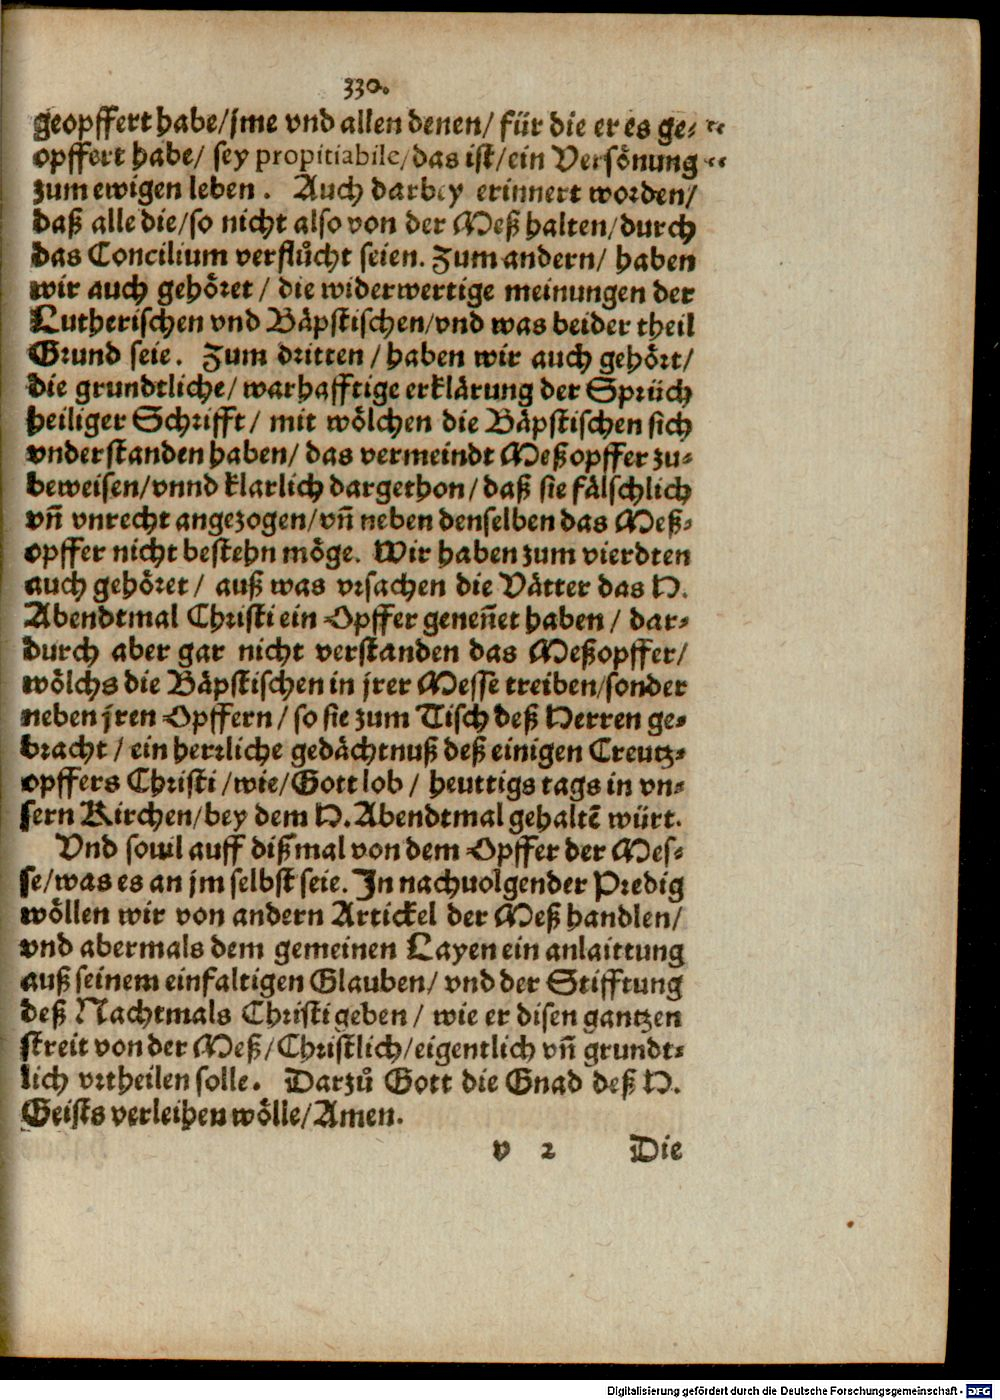 330.
geopffert habe/jme vnd allen denen/ für die er es ge⸗ "
opffert habe/ sey propitiabile/das ist/ein Versönung "
zum ewigen leben. Auch darbey erinnert worden/
daß alle die/so nicht also von der Meß halten/durch
das Concilium verflůcht seien. Zum andern/ haben
wir auch gehöret / die widerwertige meinungen der
Lutherischen vnd Bäpstischen/vnd was beider theil
Grund seie. Zum dritten / haben wir auch gehört/
die grundtliche/ warhafftige erklärung der Sprüch
heiliger Schrifft/ mit wölchen die Bäpstischen sich
vnderstanden haben/ das vermeindt Meßopffer zu⸗
beweisen/vnnd klarlich dargethon/ daß sie fälschlich
vñ vnrecht angezogen/vñ neben denselben das Meß⸗
opffer nicht bestehn möge. Wir haben zum vierdten
auch gehöret/ auß was vrsachen die Vätter das H.
Abendtmal Christi ein Opffer geneñet haben / dar⸗
durch aber gar nicht verstanden das Meßopffer/
wölchs die Bäpstischen in jrer Messe treiben/sonder
neben jren Opffern / so sie zum Tisch deß Herren ge⸗
bracht / ein herrliche gedächtnuß deß einigen Creutz⸗
opffers Christi /wie/Gott lob / heuttigs tags in vn⸗
sern Kirchen/bey dem H. Abendtmal gehaltẽ würt.
Vnd souil auff dißmal von dem Opffer der Mes⸗
se/was es an jm selbst seie. In nachuolgender Predig
wöllen wir von andern Artickel der Meß handlen/
vnd abermals dem gemeinen Layen ein anlaittung
auß seinem einfaltigen Glauben/ vnd der Stifftung
deß Nachtmals Christi geben / wie er disen gantzen
streit von der Meß/Christlich/eigentlich vñ grundt⸗
lich vrtheilen solle. Darzů Gott die Gnad deß H.
Geists verleihen wölle/Amen.
v 2 Die
Digitalisierung gefördert durch die Deutsche Forschungsgemeinschaft - DFG